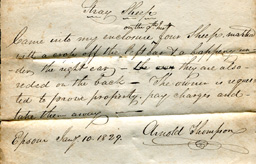 Stray Sheep
on the 5th inst
Came into my enclosure four Sheep, marked
with a crop off the left ear & a happeny un-
der the right ear, they are also
reded on the back – The owner is reques
ted to prove property, pay charges and
take them away –
Epsom Jany 10. 1829. Arnold Thompson